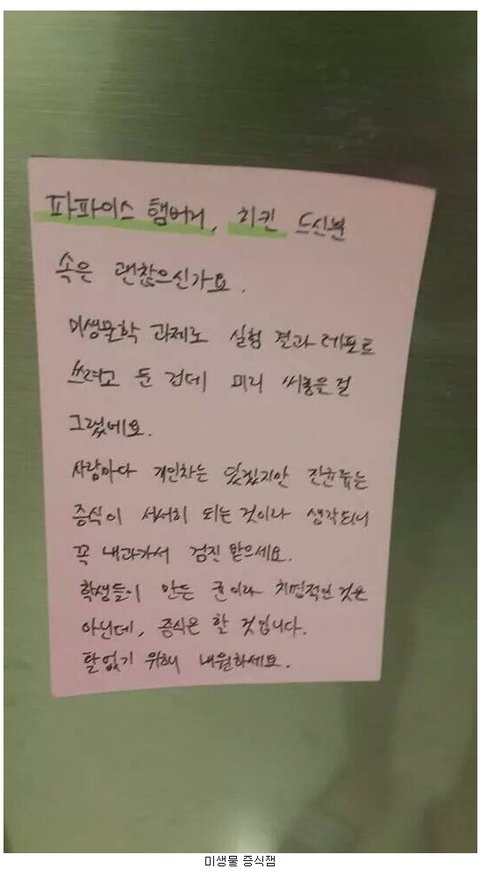 파파이스 햄버거, 치킨 드신분
속은 괜찮으신가요.
미생물학 과제로 실험 결과 레포트
쓰려고 둔 건데 미리 써놓을걸
그랬네요.
사람마다 개인차는 있겠지만 진균류는
증식이 서서히 되는 것이라 생각되니
꼭 내과가서 검진 받으세요.
학생들이 만든 균이라 치명적인 것은
아닌데, 증식은 할 것입니다.
탈없기 위해 내원하세요.
미생물 증식잼